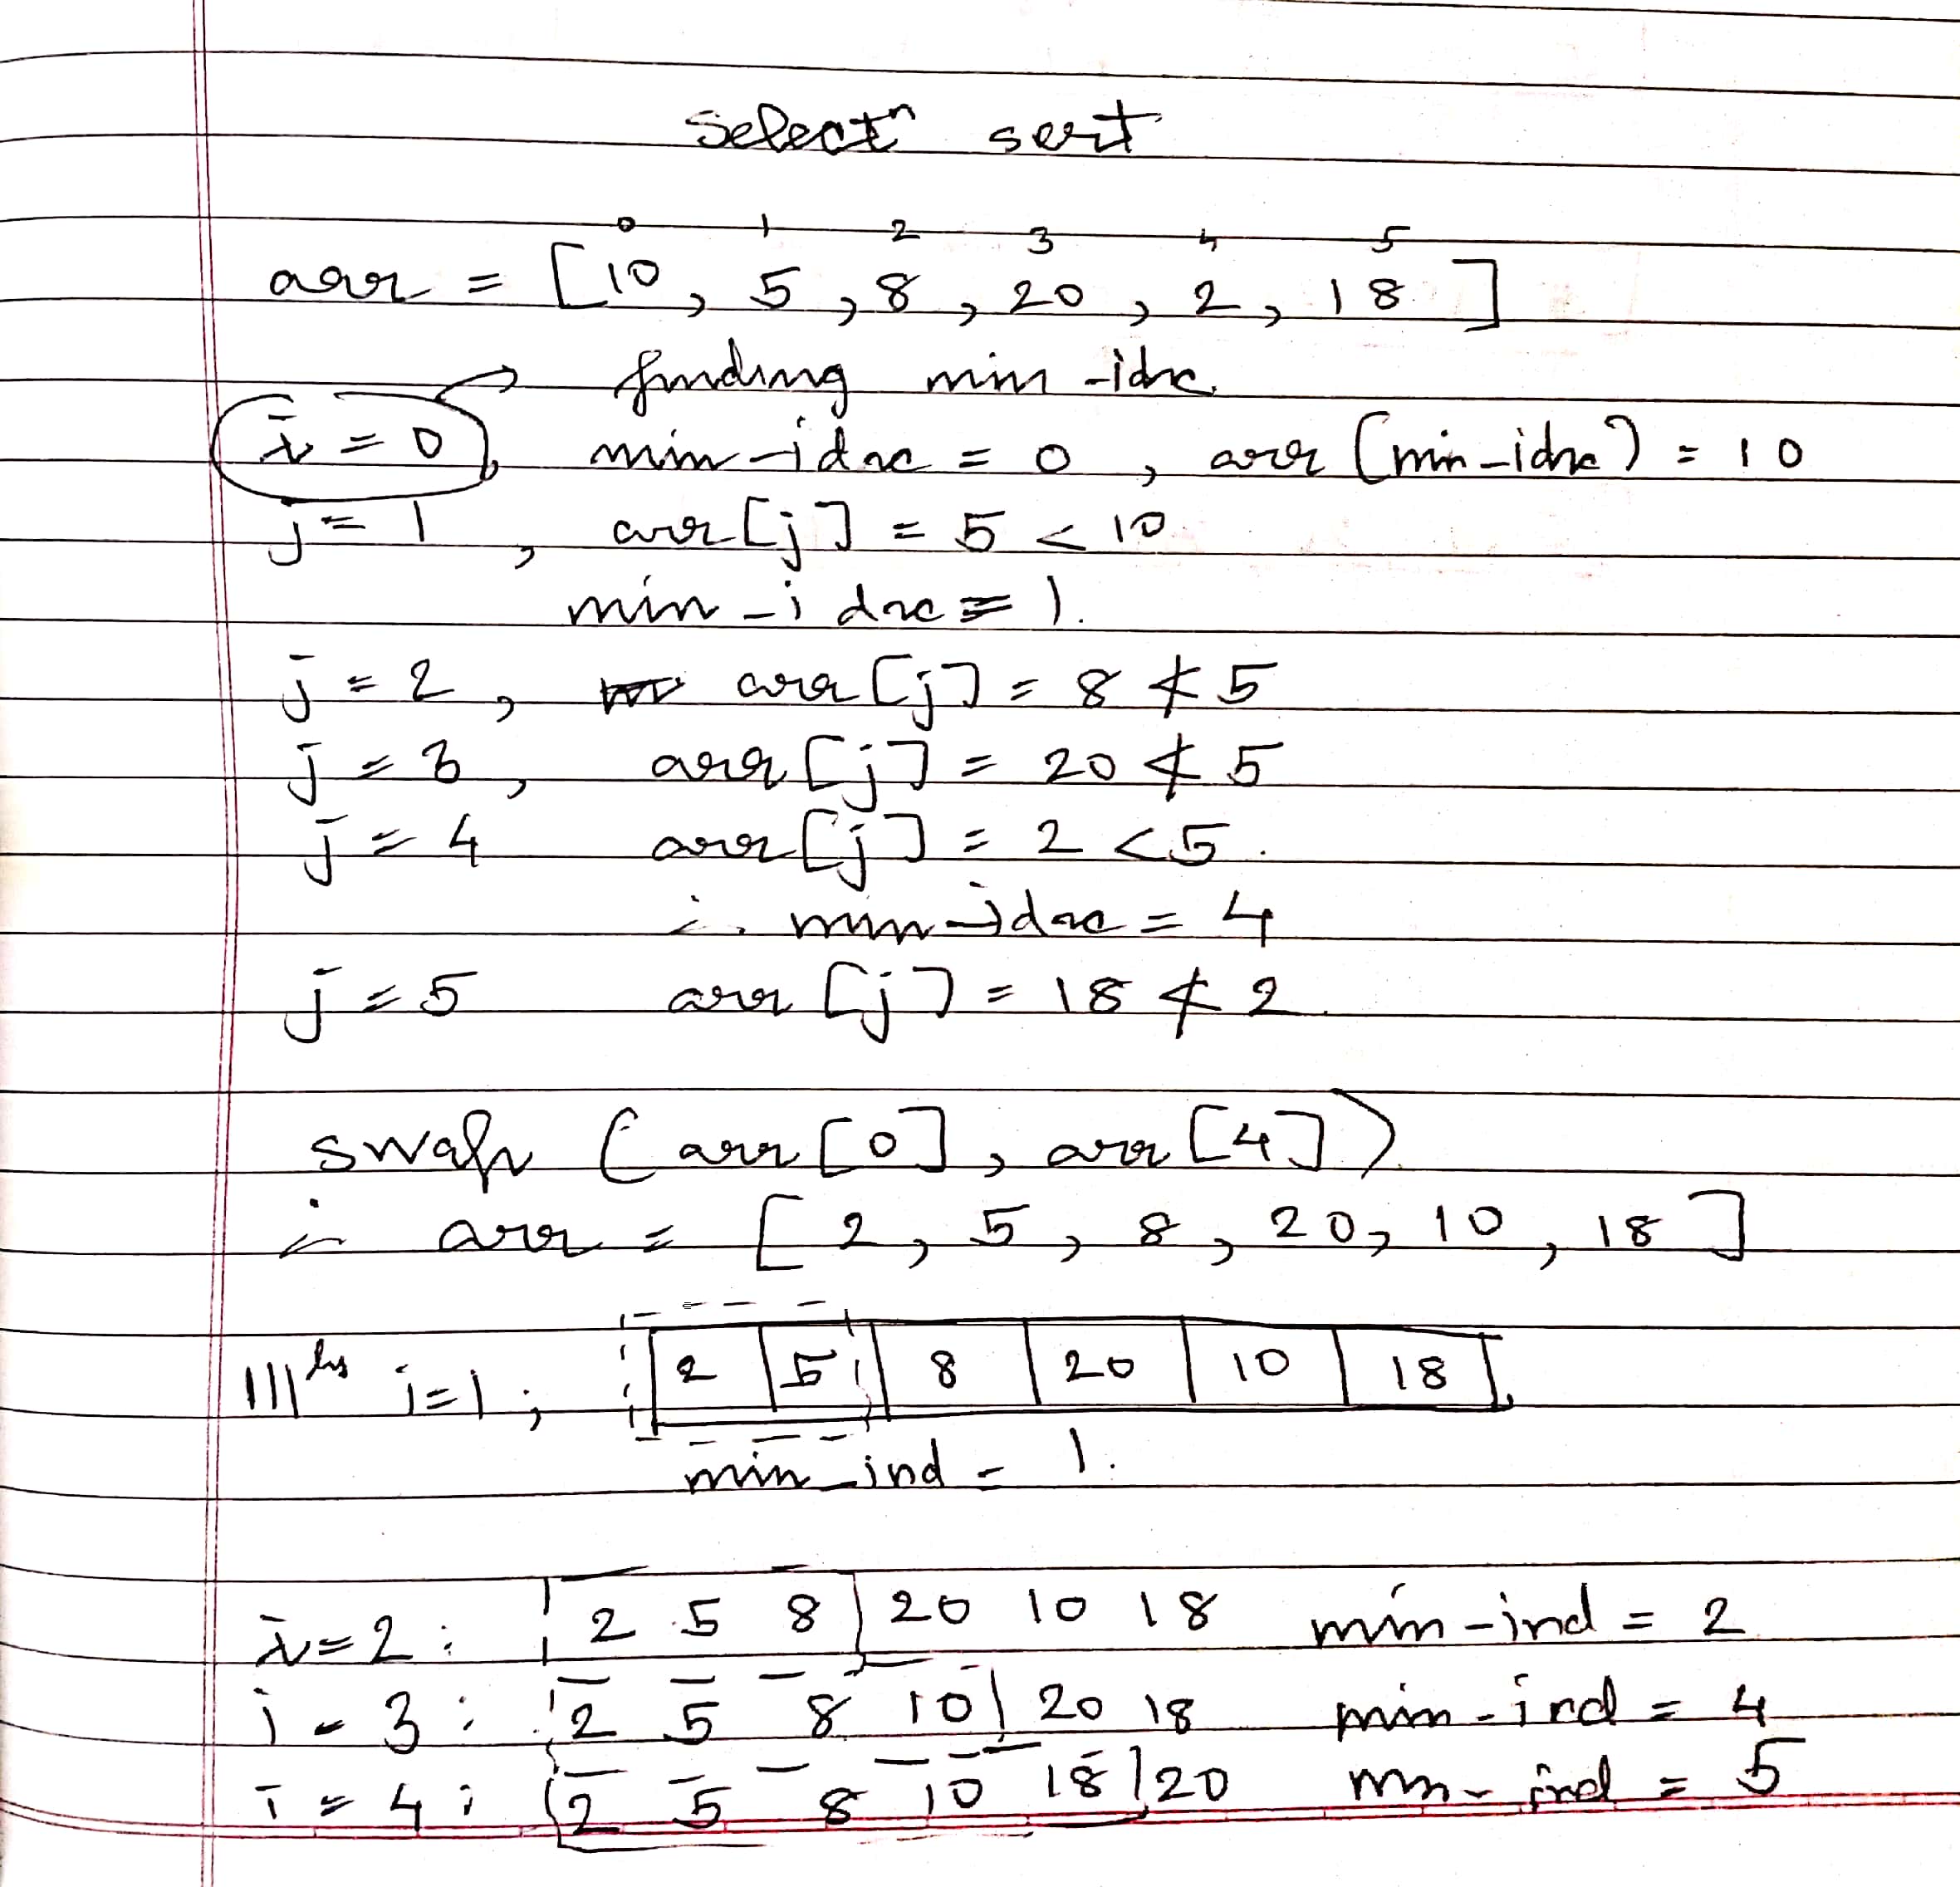 selectⁿ sort
0 1 2 3 4 5
arr = [10, 5, 8, 20, 2, 18]
→ finding min-idx.
i = 0, min-idx = 0, arr (min-idx) = 10
j = 1, arr[j] = 5 < 10
min-idx = 1.
j = 2, arr[j] = 8 ≮ 5
j = 3, arr[j] = 20 ≮ 5
j = 4 arr[j] = 2 < 5.
∴ min-idx = 4
j = 5 arr[j] = 18 ≮ 2.
swap (arr[0], arr[4])
∴ arr = [2, 5, 8, 20, 10, 18]
|||ly i=1; 2 5 8 20 10 18
min-ind = 1.
i=2: 2 5 8 20 10 18 min-ind = 2
i = 3: 2 5 8 10 20 18 min-ind = 4
i = 4: 2 5 8 10 18 20 min-ind = 5